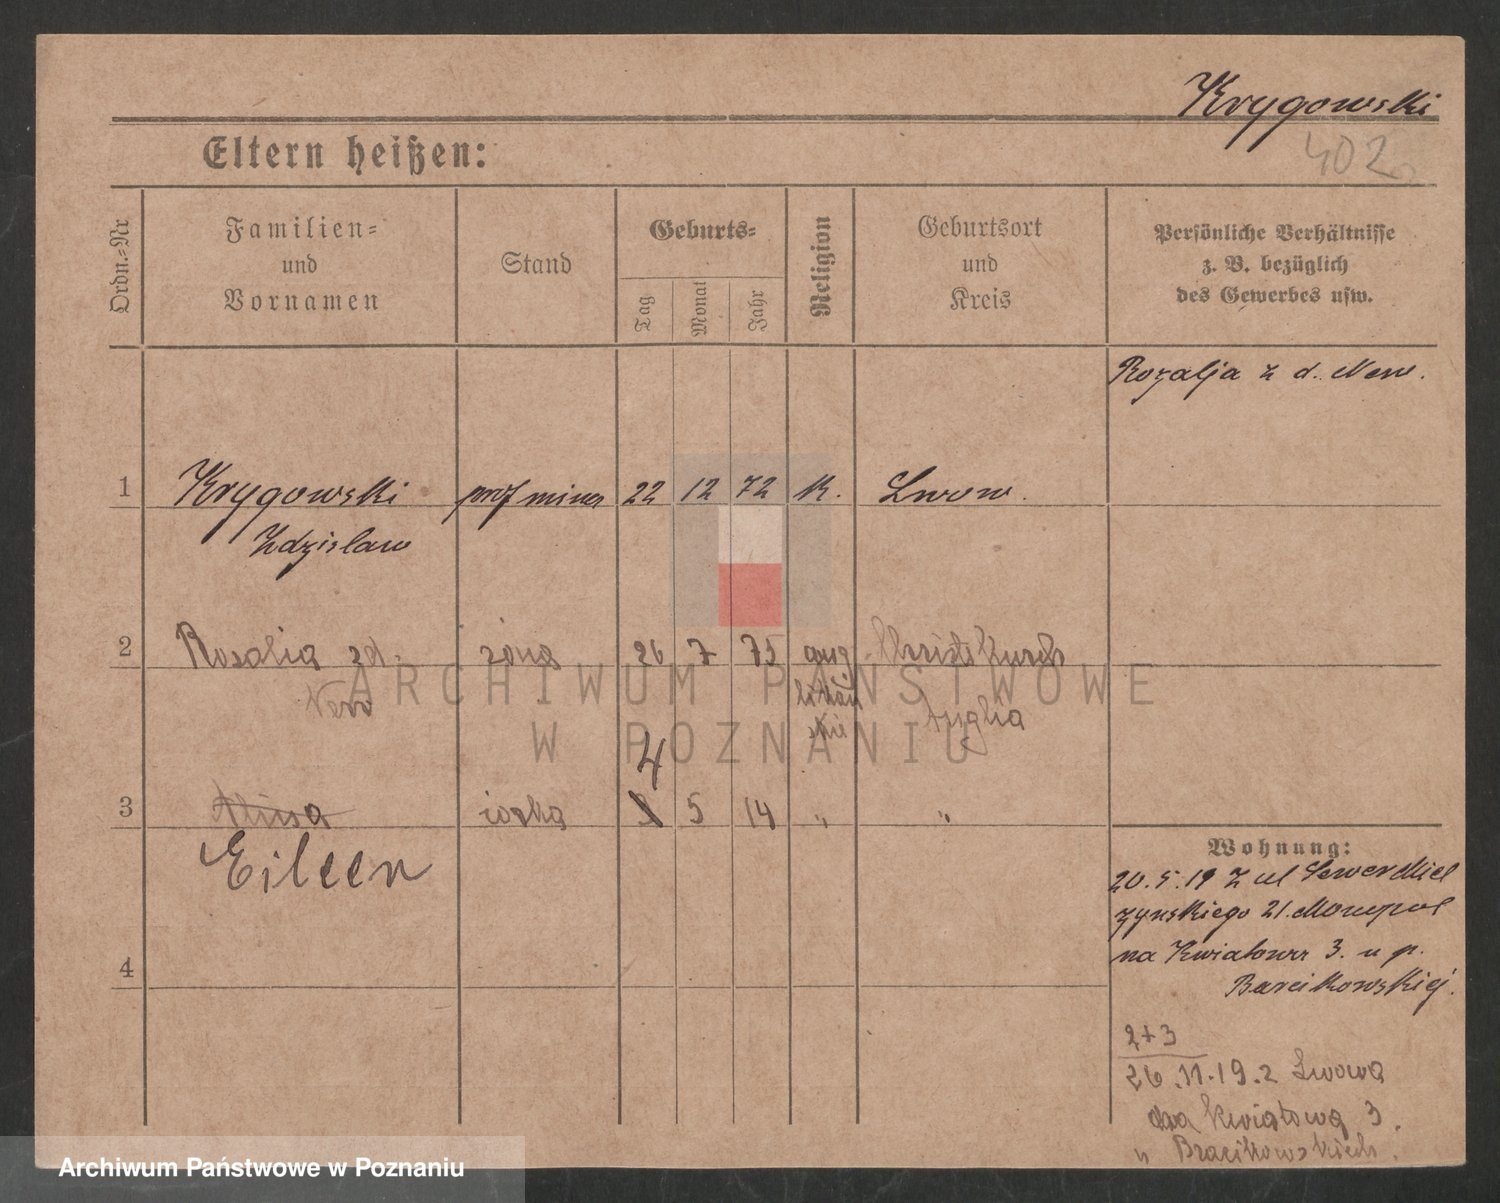 Krygowski
402
Eltern heißen:
Ordn.-Nr
Familien-
und
Vornamen
Stand
Geburts-
Tag
Monat
Jahr
Religion
Geburtsort
und
Kreis
Persönliche Verhältnisse
z. B. bezüglich
des Gewerbes usw.
Rozalja z d. New.
1 Krygowski prof 22 12 72 K. Lwow.
Zdzislaw
2 Rosalia zd. żona 26 7 75 ang Christchurch
Anglia
4
3 Alina iorka 5 14 " "
Eileen
4
Wohnung:
20.5.19 z ul Sewer Miel
zynskiego 21.
na Kwiatowa 3. u p.
Barcikowskiej.
2+3
26.11.19. z Lwowa
na Kwiatową 3.
u Bracikowskich.
ARCHIWUM PAŃSTWOWE
W POZNANIU
Archiwum Państwowe w Poznaniu